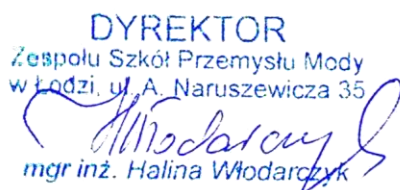 DYREKTOR
Zespołu Szkół Przemysłu Mody
w Łodzi, ul. A. Naruszewicza 35
HWłodarczyk
mgr inż. Halina Włodarczyk